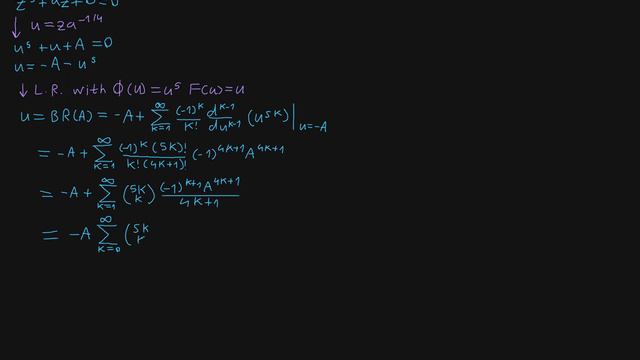 z⁵+az+b=0
↓ u=za^{-1/4}
u⁵+u+A=0
u=-A-u⁵
↓ L.R. with ϕ(u)=u⁵ F(u)=u
u=BR(A)=-A+∑_{k=1}^{∞} (-1)^k/k! d^{k-1}/du^{k-1} (u^{5k})|_{u=-A}
=-A+∑_{k=1}^{∞} (-1)^k(5k)!/k!(4k+1)! (-1)^{4k+1}A^{4k+1}
=-A+∑_{k=1}^{∞} (5k k) (-1)^{k+1}A^{4k+1}/4k+1
=-A∑_{k=0}^{∞} (5k k